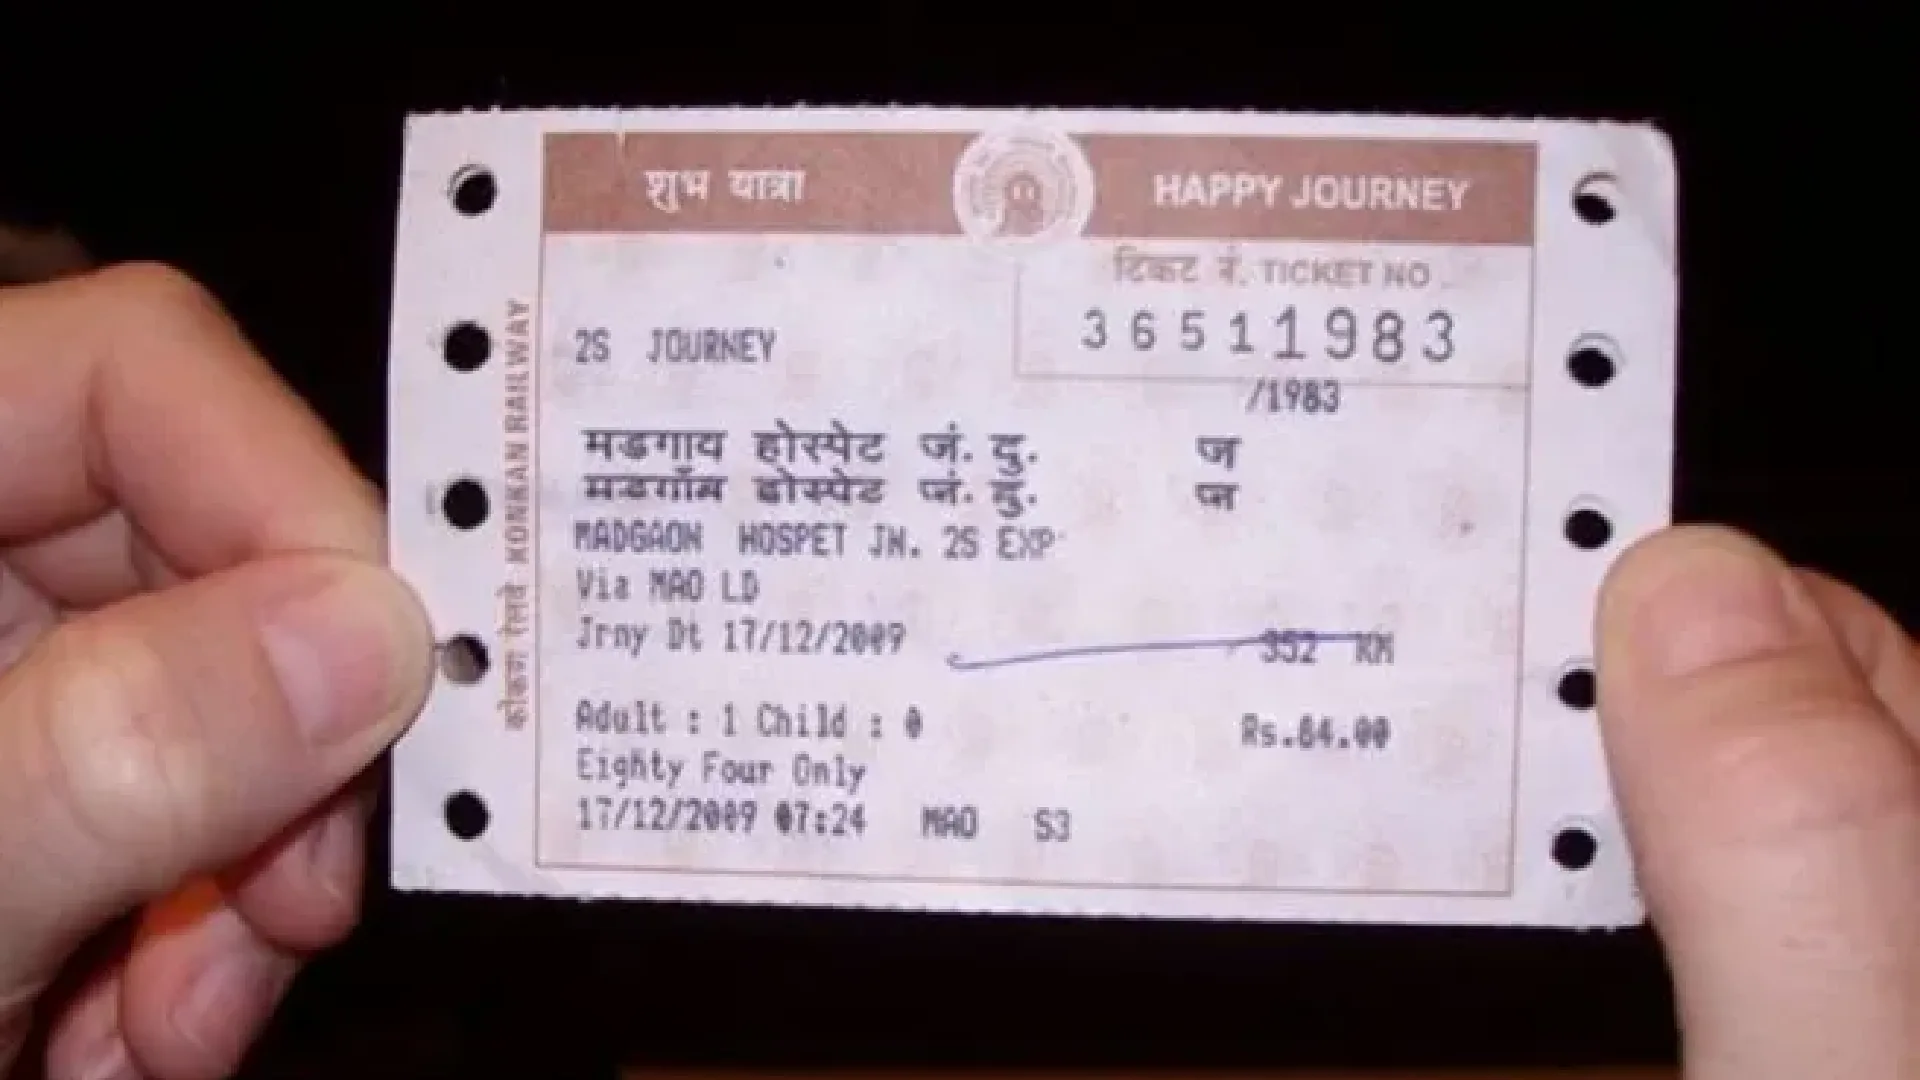 शुभ यात्रा HAPPY JOURNEY
टिकट नं. TICKET NO.
36511983
2S JOURNEY
/1983
मडगाय होस्पेट जं. दु. ज
मडगाँव होस्पेट जं. दु. ज
MADGAON HOSPET JN. 2S EXP
Via MAO LD
Jrny Dt 17/12/2009 352 KM
Adult : 1 Child : 0 Rs.84.00
Eighty Four Only
17/12/2009 07:24 MAO S3
कोंकण रेलवे KONKAN RAILWAY